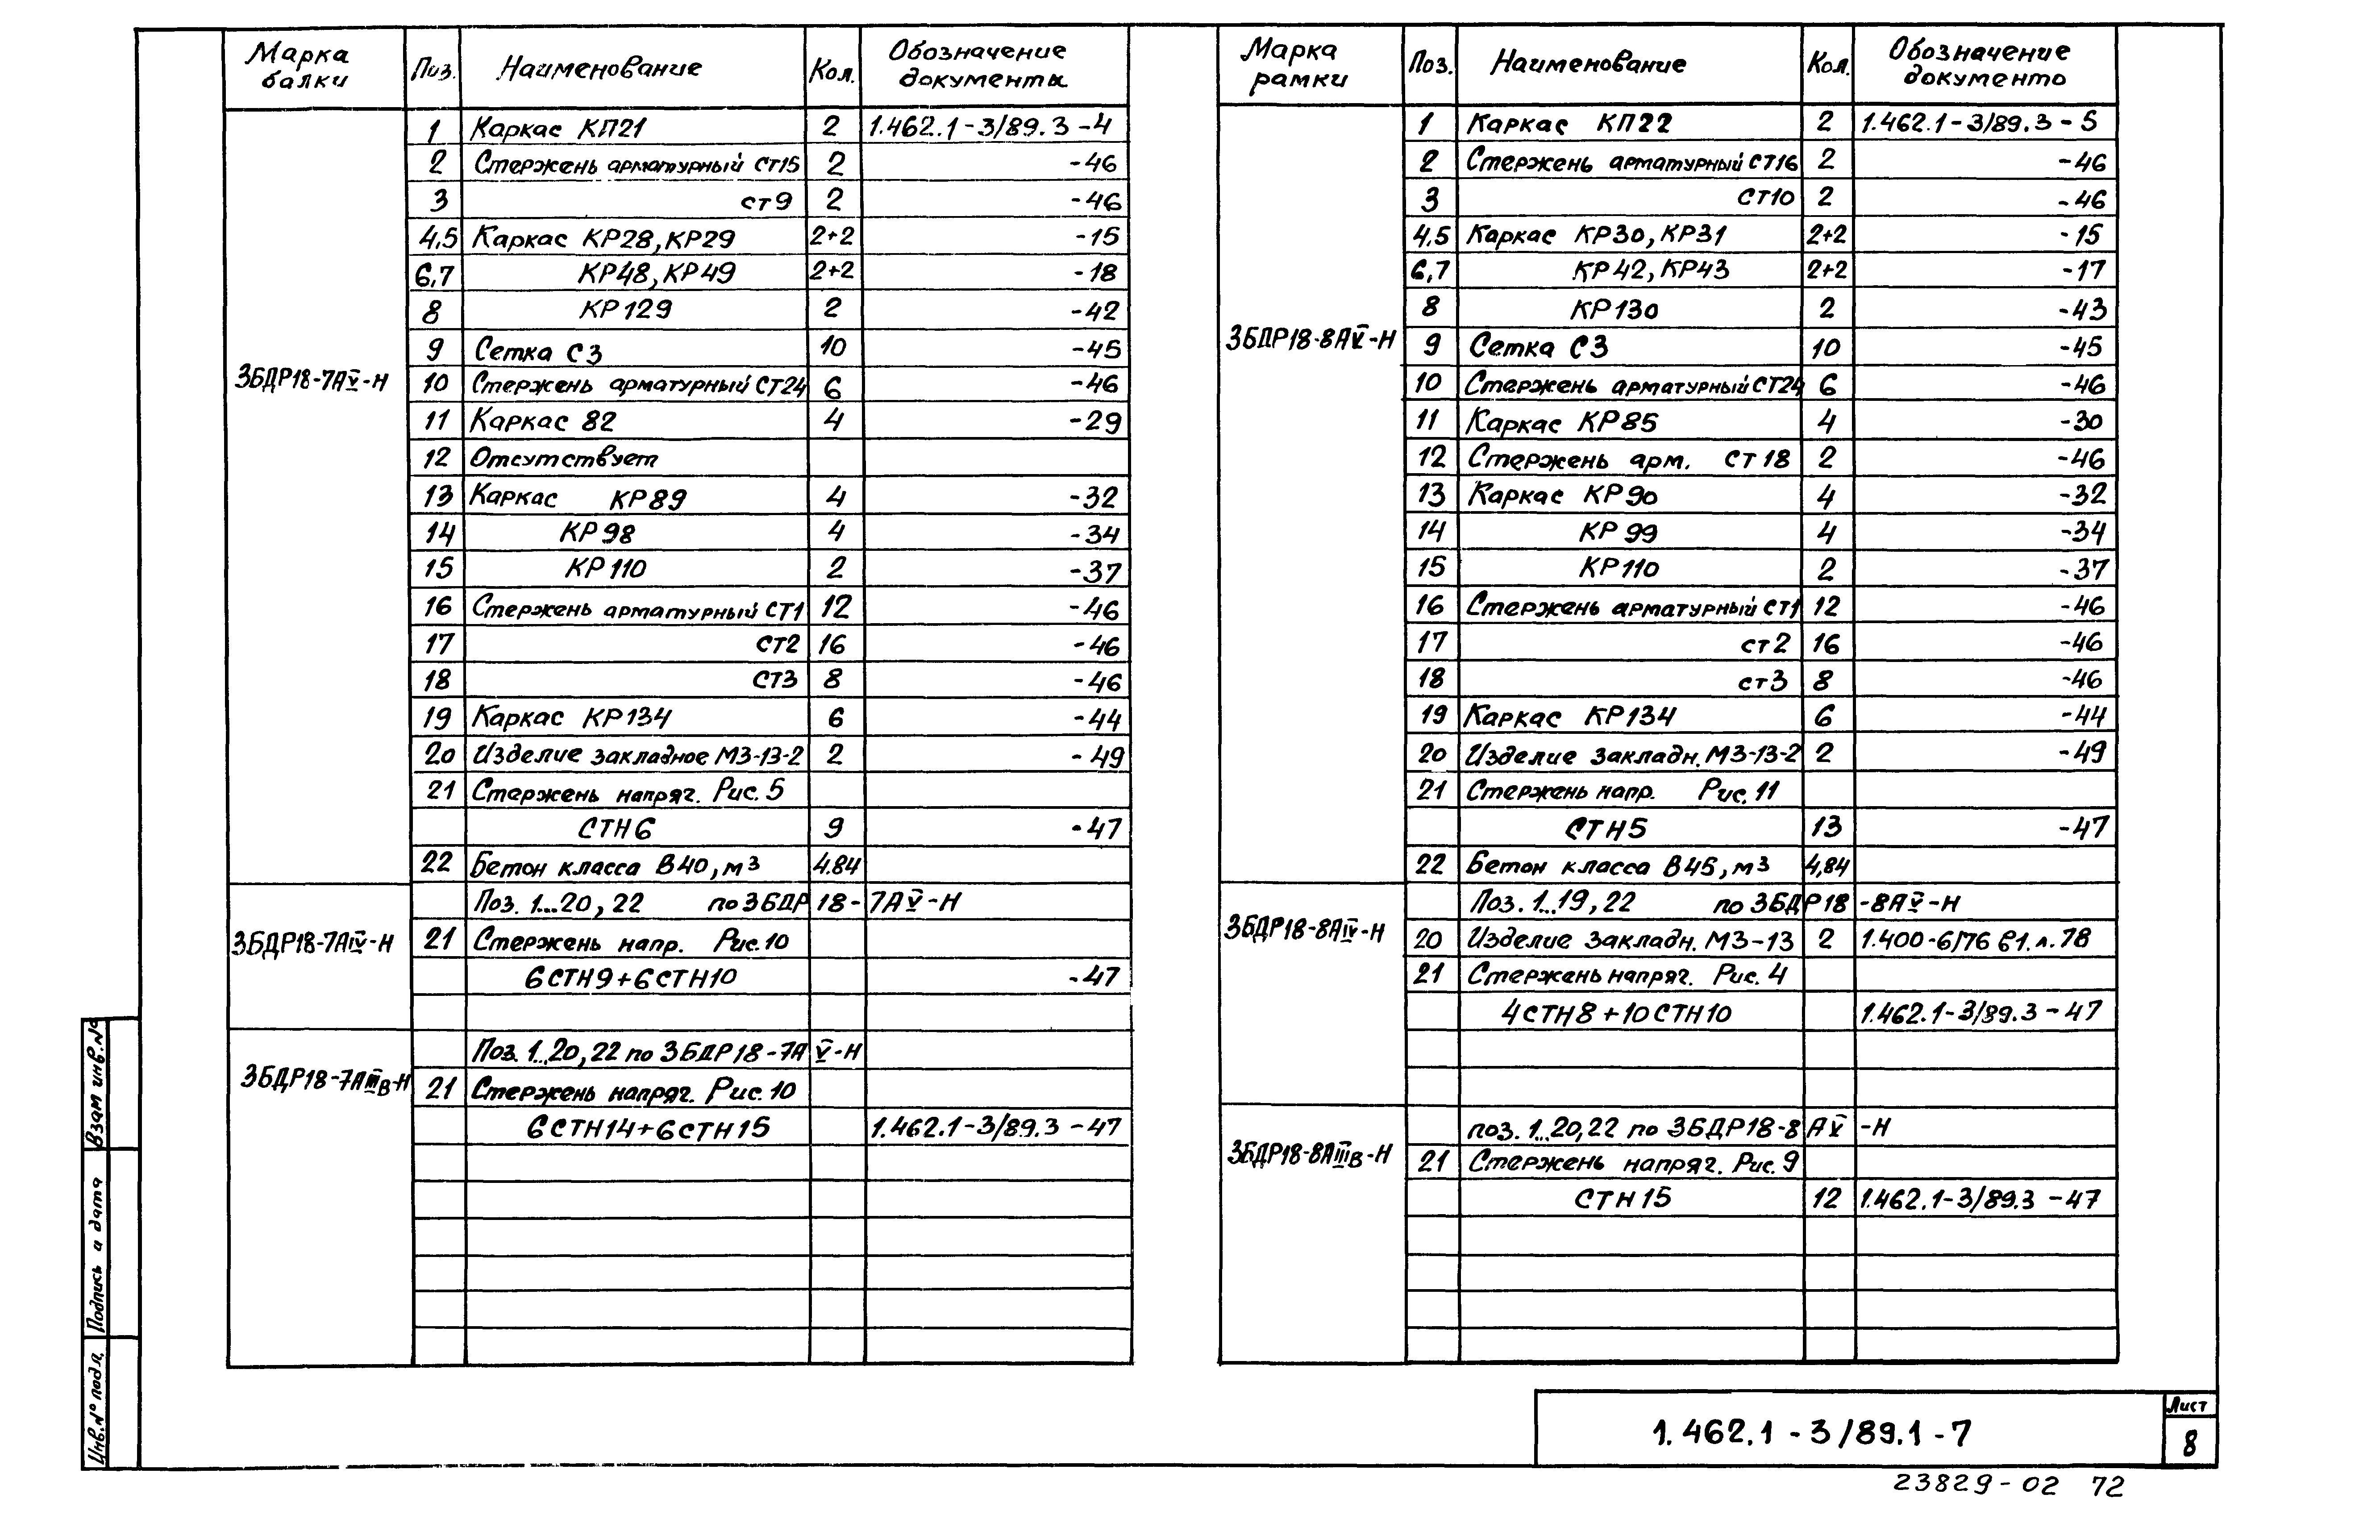 Марка балки Поз. Наименование Кол. Обозначение документа
1 Каркас КП21 2 1.462.1-3/89.3-4
2 Стержень арматурный СТ15 2 -46
3 ст9 2 -46
4,5 Каркас КР28, КР29 2+2 -15
6,7 КР48, КР49 2+2 -18
8 КР129 2 -42
9 Сетка С3 10 -45
3БДР18-7АV-Н 10 Стержень арматурный СТ24 6 -46
11 Каркас 82 4 -29
12 Отсутствует
13 Каркас КР89 4 -32
14 КР98 4 -34
15 КР110 2 -37
16 Стержень арматурный СТ1 12 -46
17 СТ2 16 -46
18 СТ3 8 -46
19 Каркас КР134 6 -44
20 Изделие закладное МЗ-13-2 2 -49
21 Стержень напряг. Рис. 5
СТН6 9 -47
22 Бетон класса В40, м3 4.84
Поз. 1...20, 22 по 3БДР18-7АV-Н
3БДР18-7АIV-Н 21 Стержень напр. Рис. 10
6СТН9+6СТН10 -47
Поз. 1...20, 22 по 3БДР18-7АV-Н
3БДР18-7АIIIв-Н 21 Стержень напряг. Рис. 10
6СТН14+6СТН15 1.462.1-3/89.3-47
Марка рамки Поз. Наименование Кол. Обозначение документо
1 Каркас КП22 2 1.462.1-3/89.3-5
2 Стержень арматурный СТ16 2 -46
3 СТ10 2 -46
4,5 Каркас КР30, КР31 2+2 -15
6,7 КР42, КР43 2+2 -17
8 КР130 2 -43
3БДР18-8АV-Н 9 Сетка С3 10 -45
10 Стержень арматурный СТ24 6 -46
11 Каркас КР85 4 -30
12 Стержень арм. СТ18 2 -46
13 Каркас КР90 4 -32
14 КР99 4 -34
15 КР110 2 -37
16 Стержень арматурный СТ1 12 -46
17 ст2 16 -46
18 ст3 8 -46
19 Каркас КР134 6 -44
20 Изделие закладн. МЗ-13-2 2 -49
21 Стержень напр. Рис. 11
СТН5 13 -47
22 Бетон класса В45, м3 4,84
Поз. 1...19, 22 по 3БДР18-8АV-Н
3БДР18-8АIV-Н 20 Изделие закладн. МЗ-13 2 1.400-6/76 в1. л. 78
21 Стержень напряг. Рис. 4
4СТН8+10СТН10 1.462.1-3/89.3-47
поз. 1...20,22 по 3БДР18-8АV-Н
3БДР18-8АIIIв-Н 21 Стержень напряг. Рис. 9
СТН15 12 1.462.1-3/89.3-47
Взам инв.№
Подпись и дата
Инв.№ подл.
1.462.1-3/89.1-7
Лист
8
23829-02 72